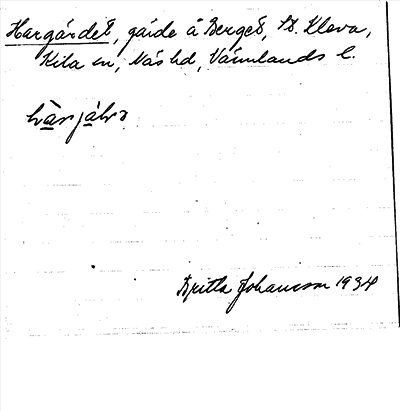 Hargärdet, gärde å Berget, St. Kleva,
Kila sn, Näs hd, Värmlands l.
Britta Johansson 1934